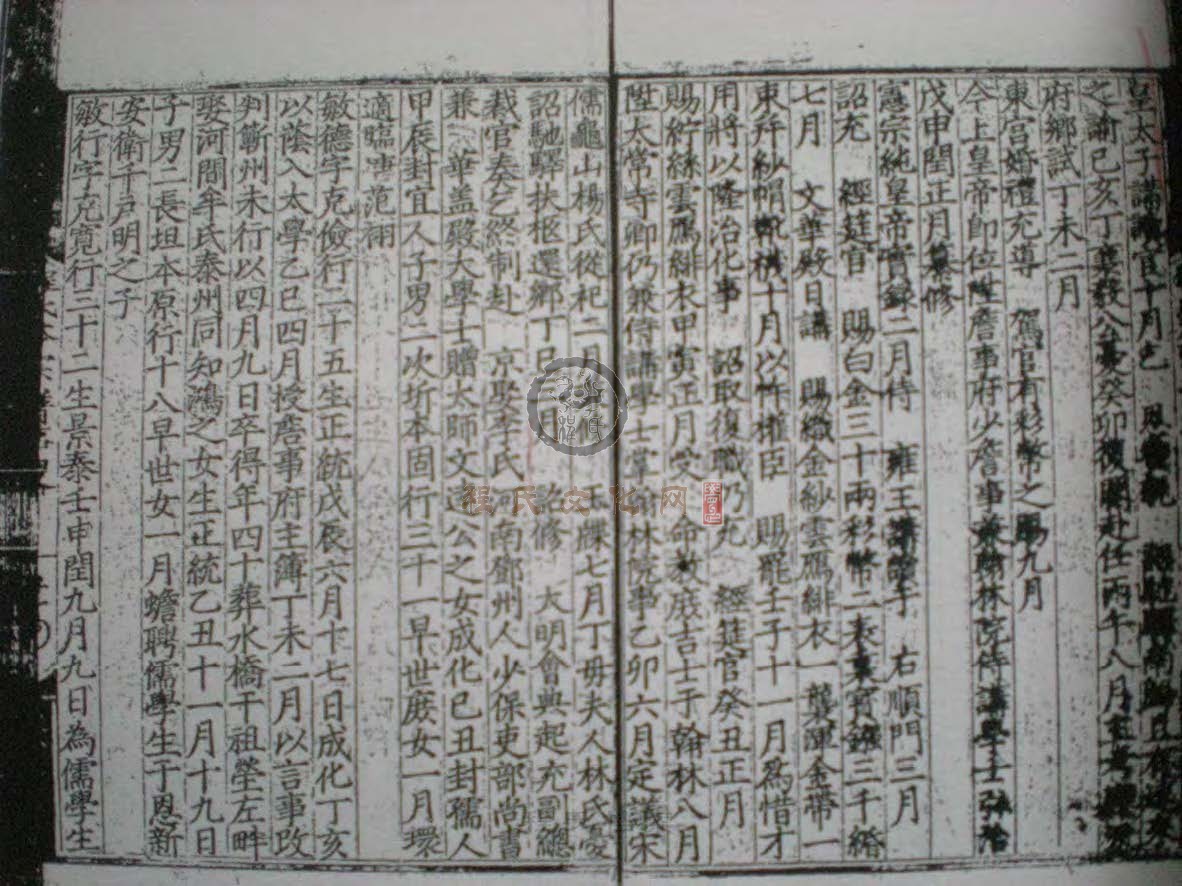 皇太子講讀官十月乞 恩
之諭己亥丁襄毅公憂癸卯復闋赴任丙午八月主考應天
府鄉試丁未二月
東宮婚禮充導 駕官有彩幣之賜九月
今上皇帝即位陞詹事府少詹事兼翰林院侍講學士弘治
戊申閏正月纂修
憲宗純皇帝實錄二月侍 雍王講讀于 右順門三月
詔充 經筵官 賜白金三十兩彩幣二表裏寶鏹三千緡
七月 文華殿日講 賜織金紗雲鴈緋衣一襲渾金帶一
東并紗帽 十月以忤權臣 賜罷壬子十一月爲惜才
用將以隆治化事 詔取復職仍充 經筵官癸丑正月
賜紵絲雲鴈緋衣甲寅正月受 命教庶吉士于翰林八月
陞太常寺卿仍兼侍講學士掌翰林院事乙卯六月定議宋
儒龜山楊氏從祀二月 修 玉牒七月丁母夫人林氏憂
詔馳驛扶柩還鄉丁巳三月 詔修 大明會典起充副總
裁官奏乞終制赴 京娶李氏河南鄧州人少保吏部尚書
兼 華蓋殿大學士贈太師文達公之女成化己丑封孺人
甲辰封宜人子男二次圻本固行三十一早世庶女一月環
適臨唐范翔
敏德字克儉行二十五生正統戊辰六月十七日成化丁亥
以蔭入太學乙巳四月授詹事府主簿丁未二月以言事改
判蘄州未行以四月九日卒得年四十葬水橋干祖塋左畔
娶河間牟氏泰州同知鸂之女生正統乙丑十一月十九日
子男二長垣本原行十八早世女一月蟾聘儒學生于恩新
安衛千戶明之子
敏行字充寬行三十二生景泰壬申閏九月九日為儒學生
程氏文化网